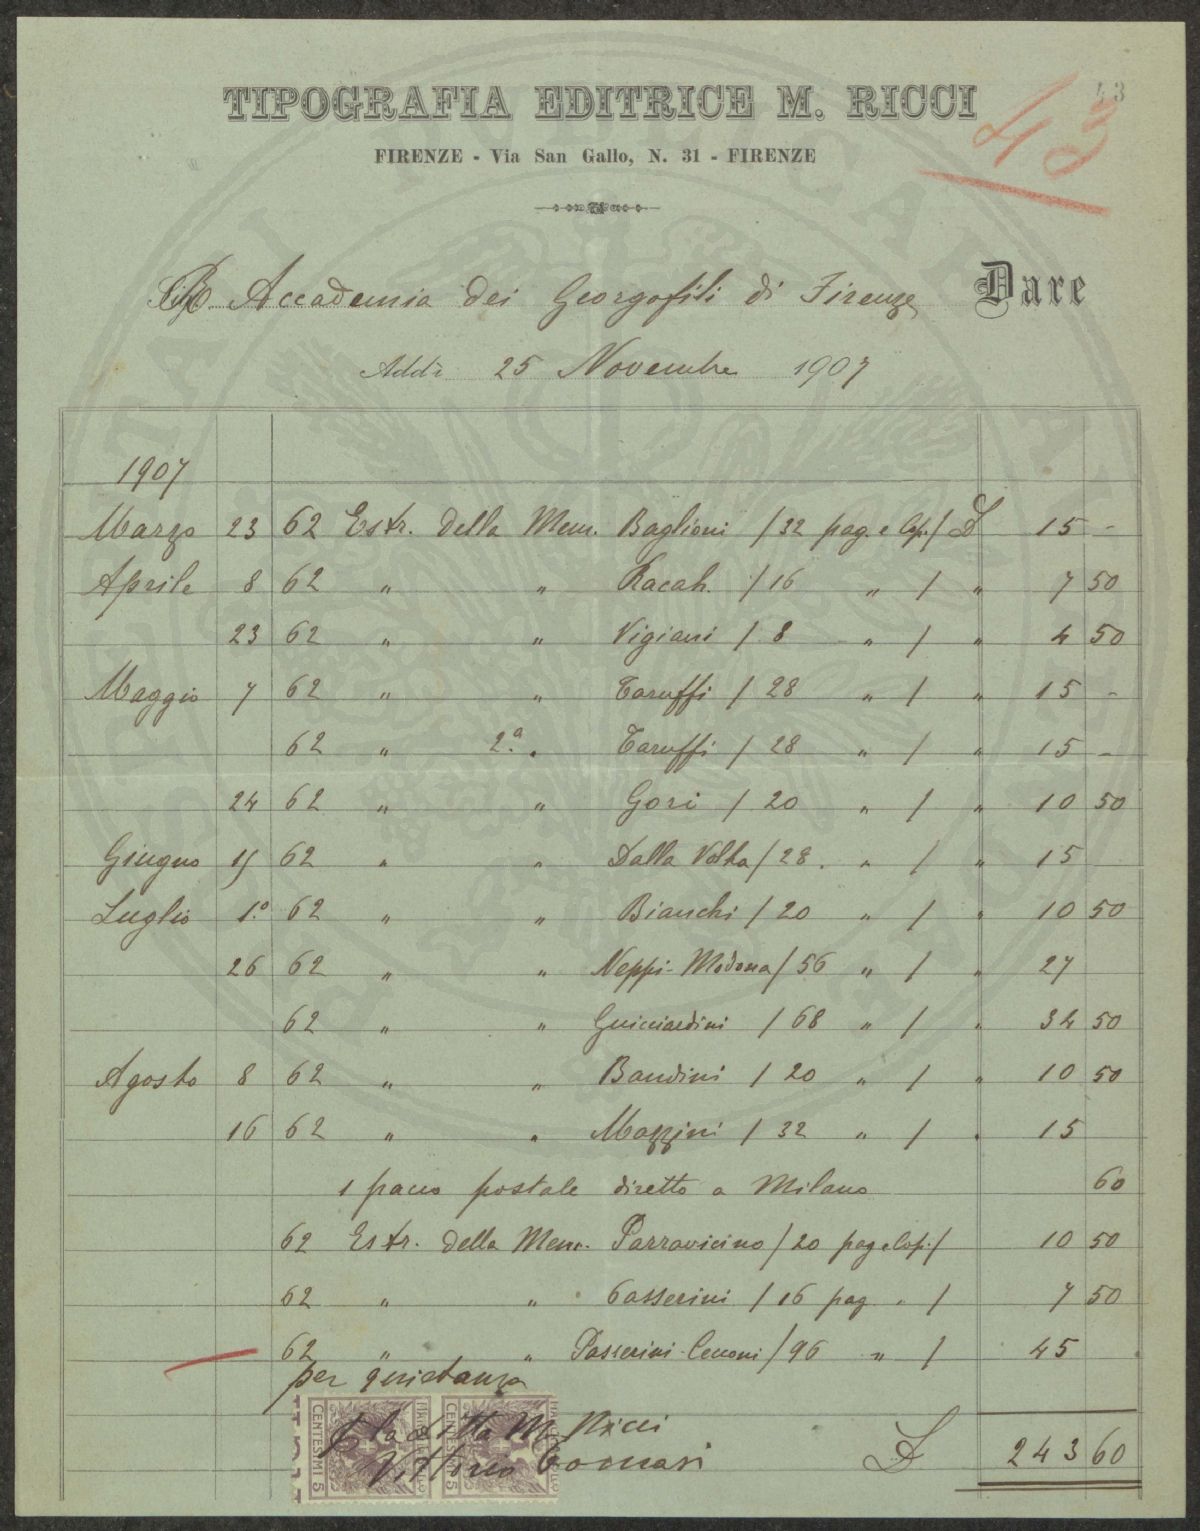 43
TIPOGRAFIA EDITRICE M. RICCI
43
FIRENZE - Via San Gallo, N. 31 - FIRENZE
R. Accademia dei Georgofili di Firenze Dare
Addì 25 Novembre 1907
1907
Marzo 23 62 Estr. della Mem. Baglioni / 32 pag. e Cop. / L 15 -
Aprile 8 62 " " Racah. / 16 " / " 7 50
23 62 " " Vigiani / 8 " / " 4 50
Maggio 7 62 " " Taruffi / 28 " / " 15 -
62 " 2.ª " Taruffi / 28 " / " 15 -
24 62 " " Gori / 20 " / " 10 50
Giugno 15 62 " " Dalla Volta / 28. " / " 15
Luglio 1.º 62 " " Bianchi / 20 " / " 10 50
26 62 " " Neppi-Modona / 56 " / " 27
62 " " Guicciardini / 68 " / " 34 50
Agosto 8 62 " " Bandini / 20 " / " 10 50
16 62 " " Mazzini / 32 " / " 15
1 pacco postale diretto a Milano 60
62 Estr. della Mem. Parravicino / 20 pag e Cop. / 10 50
62 " " Passerini / 16 pag. " / 7 50
62 " " Passerini-Cenoni / 96 " / 45
per quietanza
p la ditta M. Ricci
Vittorio Tomasi
L 243 60
CENTESIMI 5
CENTESIMI 5